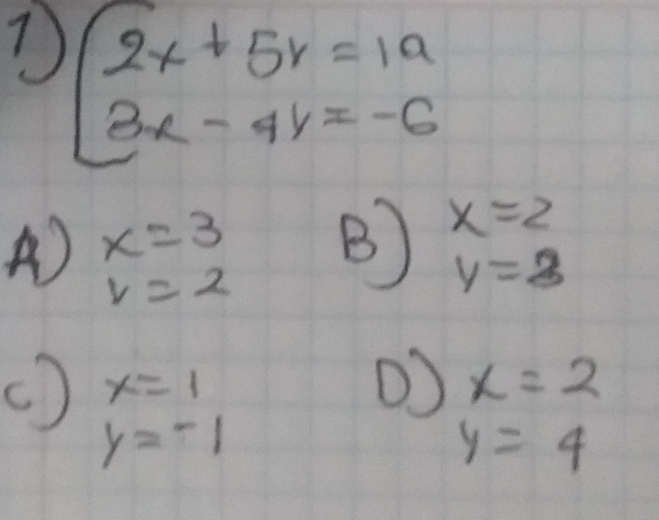 1) 2x + 5y = 19
3x - 4y = -6
A) x = 3
y = 2
B) x = 2
y = 3
C) x = 1
y = -1
D) x = 2
y = 4